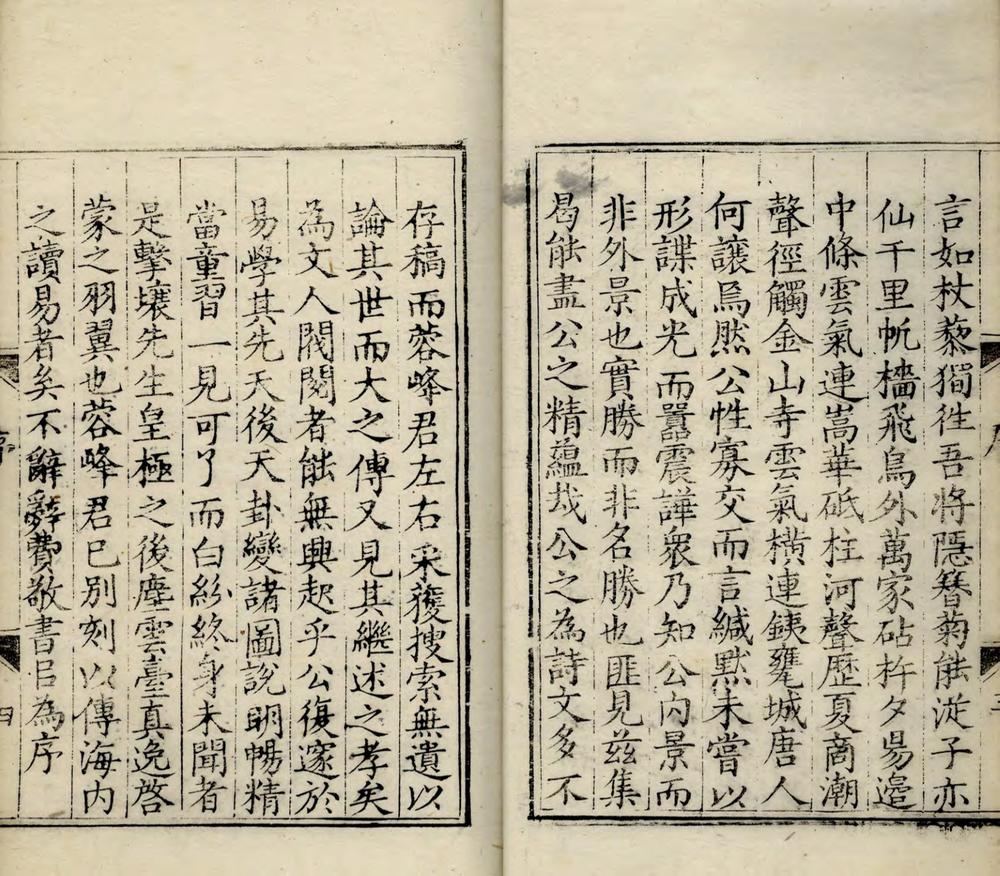 言如杖藜獨徃吾將隱簪菊能沚子亦
仙千里帆檣飛鳥外萬家砧杵夕昜邉
中條雲氣連嵩華砥柱河聲歷夏商潮
聲徑觸金山寺雲氣橫連鐵甕城唐人
何讓焉然公性寡交而言緘默未嘗以
形諜成光而囂震譁衆乃知公内景而
非外景也實勝而非名勝也匪見茲集
曷能盡公之精蘊哉公之為詩文多不
存稿而蓉峰君左右采獲搜索無遺以
論其世而大之傳又見其繼述之孝矣
為文人閥閱者能無興起乎公復邃於
易學其先天後天卦變諸圖說明暢精
當童習一見可了而白紛終身未聞者
是擊壤先生皇極之後塵雲臺真逸啓
蒙之羽翼也蓉峰君已別刻以傳海内
之讀易者矣不辭辭費敬書㠯為序
四